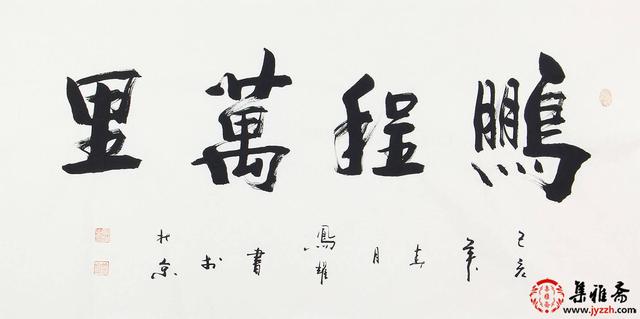 鵬程萬里
己亥年春月鳳耀書於北京
集雅斋
www.jyzzh.com